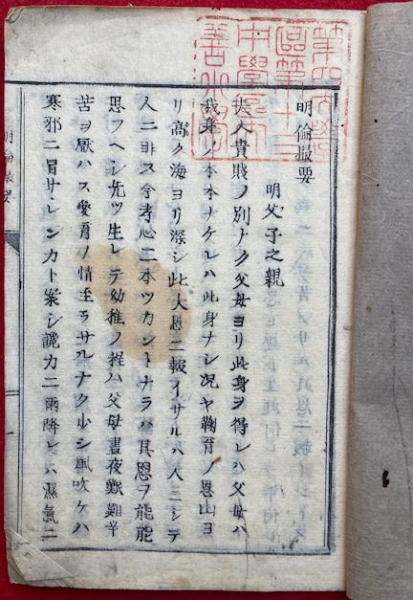 第四大學
區第十三
中學區
明倫撮要
明父子之親
夫人貴賤ノ別ナク父母ヨリ此身ヲ得レハ父母ハ
我身ノ本本ナケレハ此身ナシ况ヤ鞠育ノ恩山ヨ
リ高ク海ヨリ深シ此大恩ニ報イサルハ人ニシテ
人ニ非ス今孝心ニ本ツカントナラハ其恩ヲ能能
思フヘシ先ツ生レテ幼稚ノ程ハ父母晝夜艱難辛
苦ヲ厭ハス愛育ノ情至ラサルナク少シ風吹ケハ
寒邪ニ冒サレンカト案シカニ雨降レハ濕氣ニ
明倫撮要